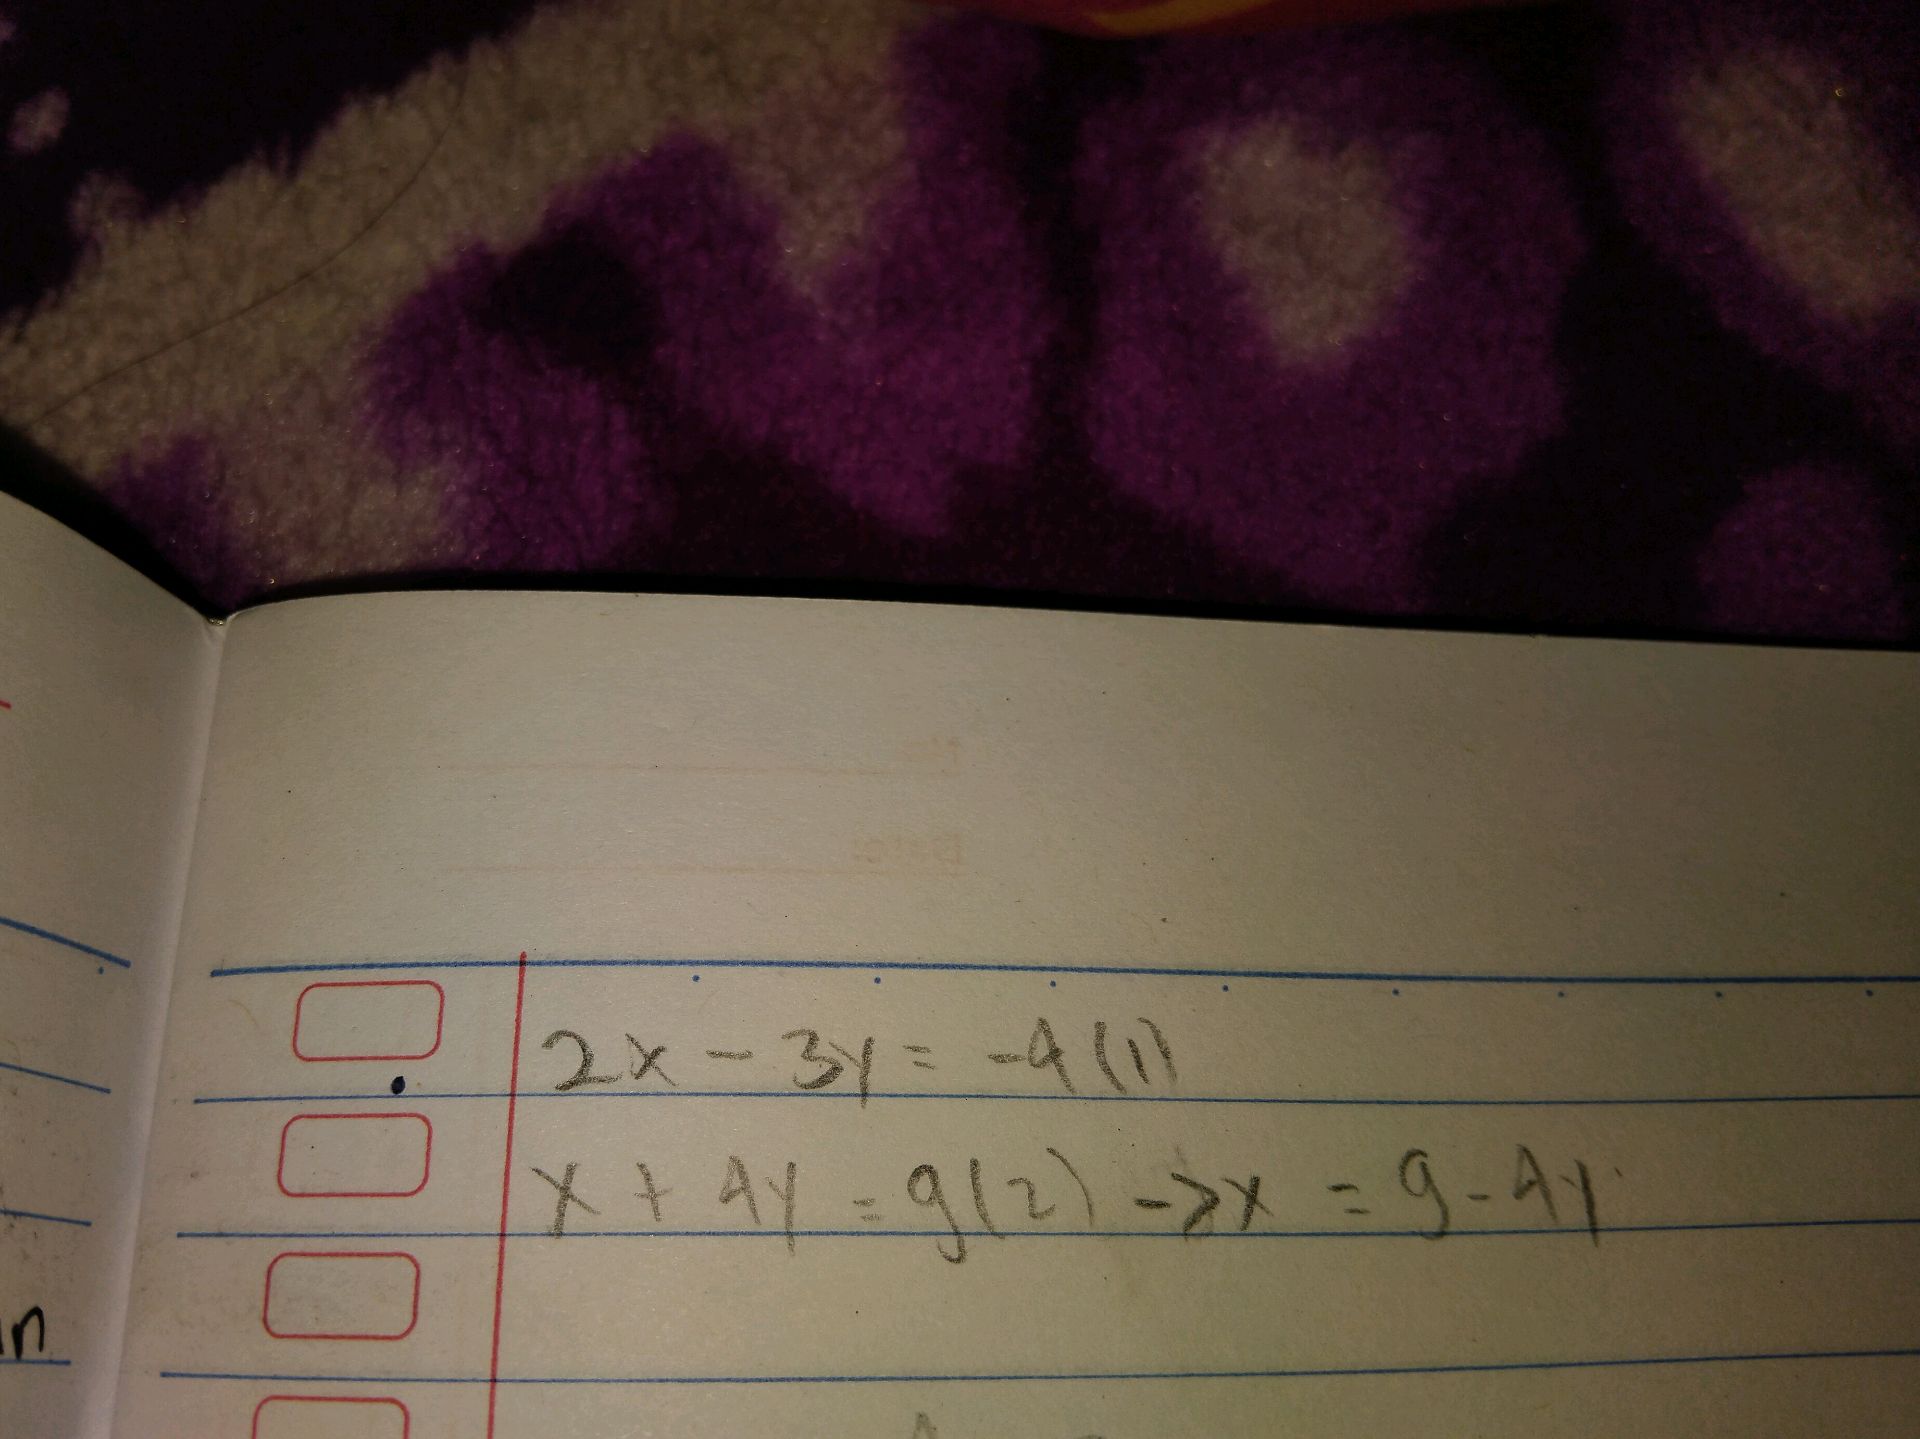 2x - 3y = -4 (1)
x + 4y = 9 (2) -> x = 9 - 4y
in